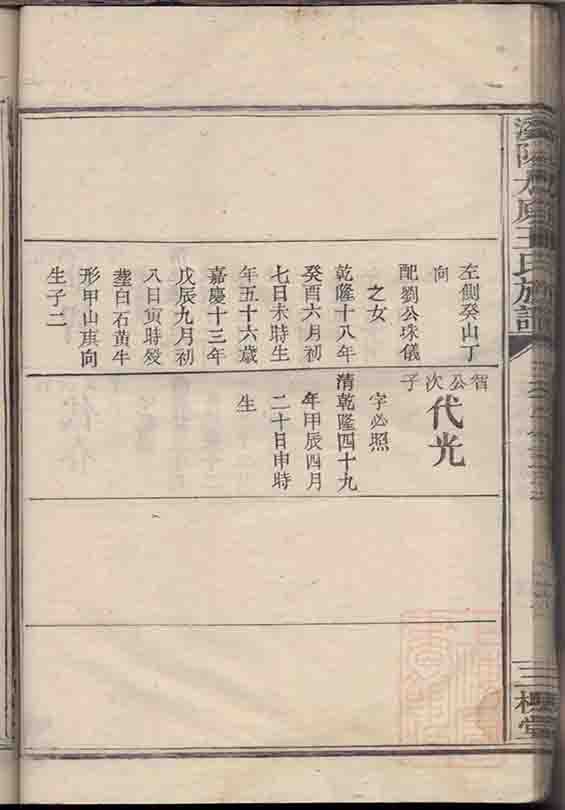 王氏族譜
三槐堂
左側癸山丁
向
配劉公珠儀
之女
乾隆十八年
癸酉六月初
七日未時生
年五十六歲
嘉慶十三年
戊辰九月初
八日寅時歿
塟白石黃牛
形甲山庚向
生子二
智公次子
代光
字必照
清乾隆四十九
年甲辰四月
二十日申時
生